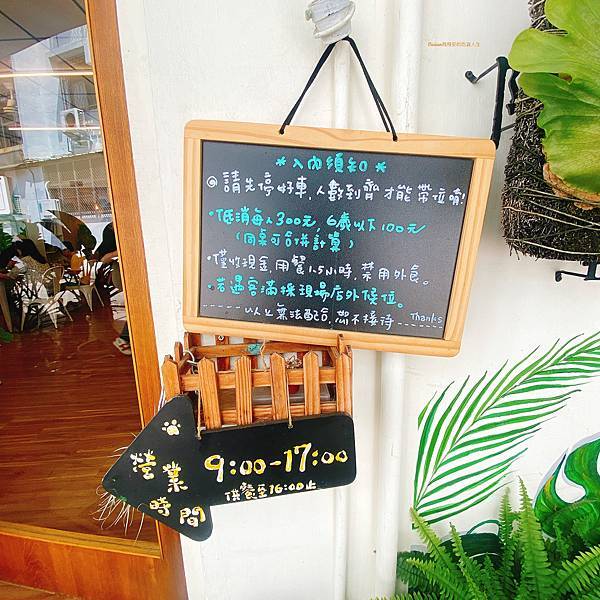 *入內須知*
@請先停好車,人數到齊才能帶位唷!
•低消每人300元,6歲以下100元
(同桌可合併計算)
•僅收現金,用餐1.5小時,禁用外食。
•若遇客滿採現場店外候位。
---以上無法配合,恕不接待---Thanks
營業時間
9:00-17:00
供餐至16:00止